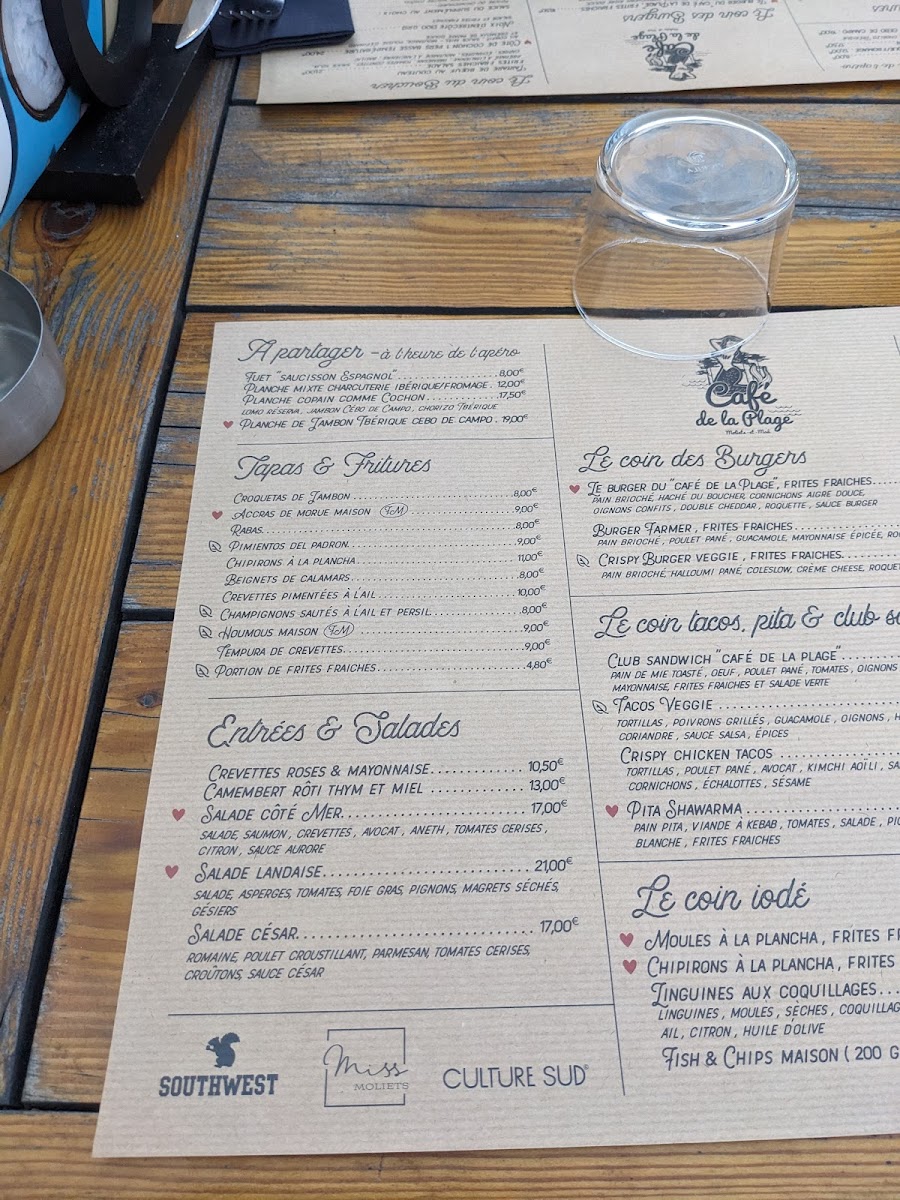 A partager - à l'heure de l'apéro
Fuet "saucisson Espagnol" 8,00€
Planche mixte charcuterie ibérique/fromage . 12,00€
Planche copain comme Cochon 17,50€
Lomo réserva, jambon Cébo de Campo, chorizo Ibérique
Planche de Jambon Ibérique cebo de campo . 19,00€
Tapas & Fritures
Croquetas de Jambon 8,00€
Accras de morue maison FM 9,00€
Rabas 8,00€
Pimientos del padron 9,00€
Chipirons à la plancha 11,00€
Beignets de calamars 8,00€
Crevettes pimentées à l'ail 10,00€
Champignons sautés à l'ail et persil 8,00€
Houmous maison FM 9,00€
Tempura de crevettes 9,00€
Portion de frites fraiches 4,80€
Entrées & Salades
Crevettes roses & mayonnaise 10,50€
Camembert rôti thym et miel 13,00€
Salade côté Mer 17,00€
salade, saumon, crevettes, avocat, aneth, tomates cerises,
citron, sauce aurore
Salade landaise 21,00€
salade, asperges, tomates, foie gras, pignons, magrets séchés,
gésiers
Salade césar 17,00€
romaine, poulet croustillant, parmesan, tomates cerises,
croûtons, sauce césar
SOUTHWEST
Miss
MOLIETS
CULTURE SUD
Café
de la Plage
Le coin des Burgers
Le burger du "café de la Plage", frites fraiches
pain brioché, haché du boucher, cornichons aigre douce,
oignons confits, double cheddar, roquette, sauce burger
Burger Farmer, frites fraiches
pain brioché, poulet pané, guacamole, mayonnaise épicée,
Crispy Burger veggie, frites fraiches
pain brioché, halloumi pané, coleslow, crème cheese,
Le coin tacos, pita & club
Club sandwich "café de la plage"
pain de mie toasté, oeuf, poulet pané, tomates, oignons
mayonnaise, frites fraiches et salade verte
Tacos Veggie
tortillas, poivrons grillés, guacamole, oignons,
coriandre, sauce salsa, épices
Crispy chicken tacos
tortillas, poulet pané, avocat, kimchi aoïli,
cornichons, échalottes, sésame
Pita Shawarma
pain pita, viande à kebab, tomates, salade,
blanche, frites fraiches
Le coin iodé
Moules à la plancha, frites
Chipirons à la plancha, frites
Linguines aux coquillages
linguines, moules, sèches,
ail, citron, huile d'olive
Fish & Chips maison (200